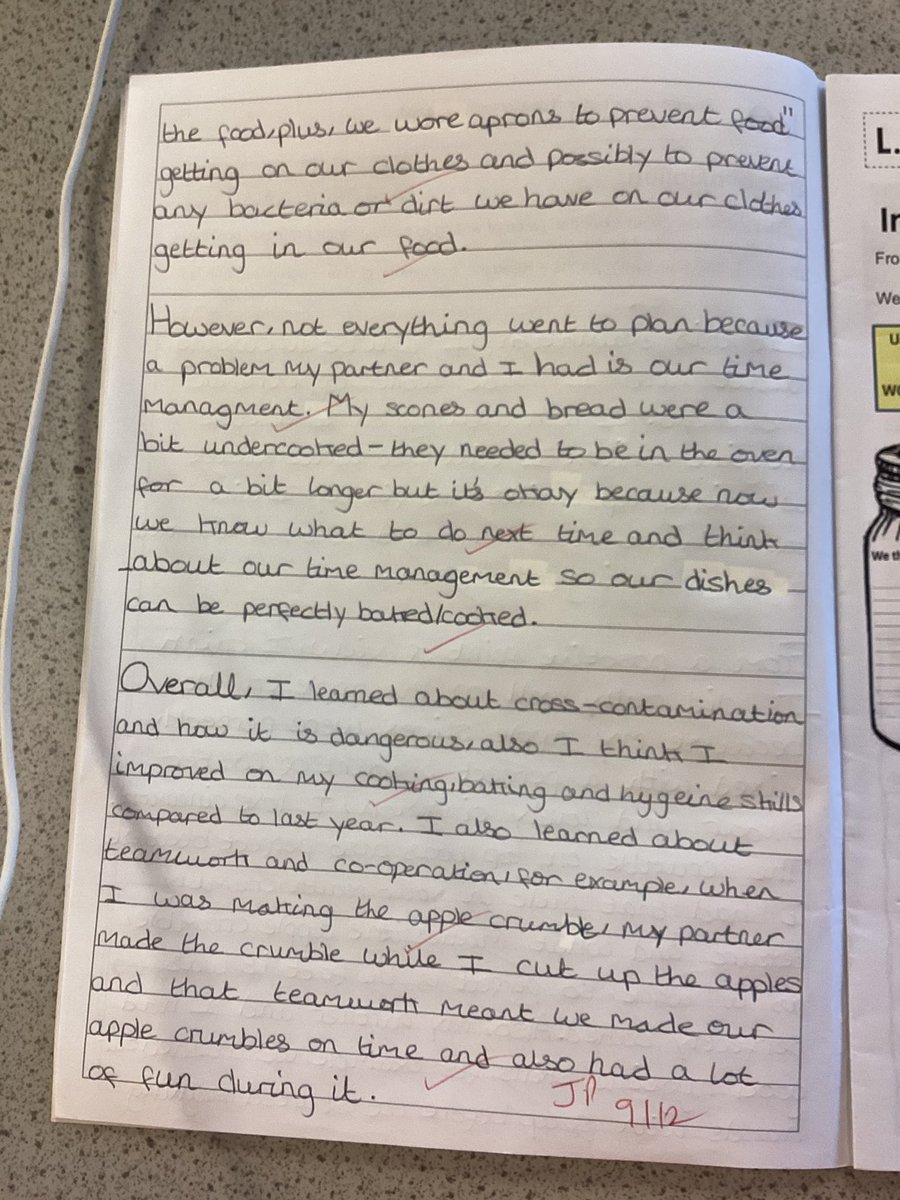 the food, plus, we wore aprons to prevent food"
getting on our clothes and possibly to prevent
any bacteria or dirt we have on our clothes
getting in our food.
However, not everything went to plan because
a problem my partner and I had is our time
managment. My scones and bread were a
bit undercooked - they needed to be in the oven
for a bit longer but it's okay because now
we know what to do next time and think
about our time management so our dishes
can be perfectly baked/cooked.
Overall, I learned about cross-contamination
and how it is dangerous, also I think I
improved on my cooking, baking and hygeine skills
compared to last year. I also learned about
teamwork and co-operation, for example, when
I was making the apple crumble, my partner
made the crumble while I cut up the apples
and that teamwork meant we made our
apple crumbles on time and also had a lot
of fun during it.
JP 9/12
L.
Fro
We
We th